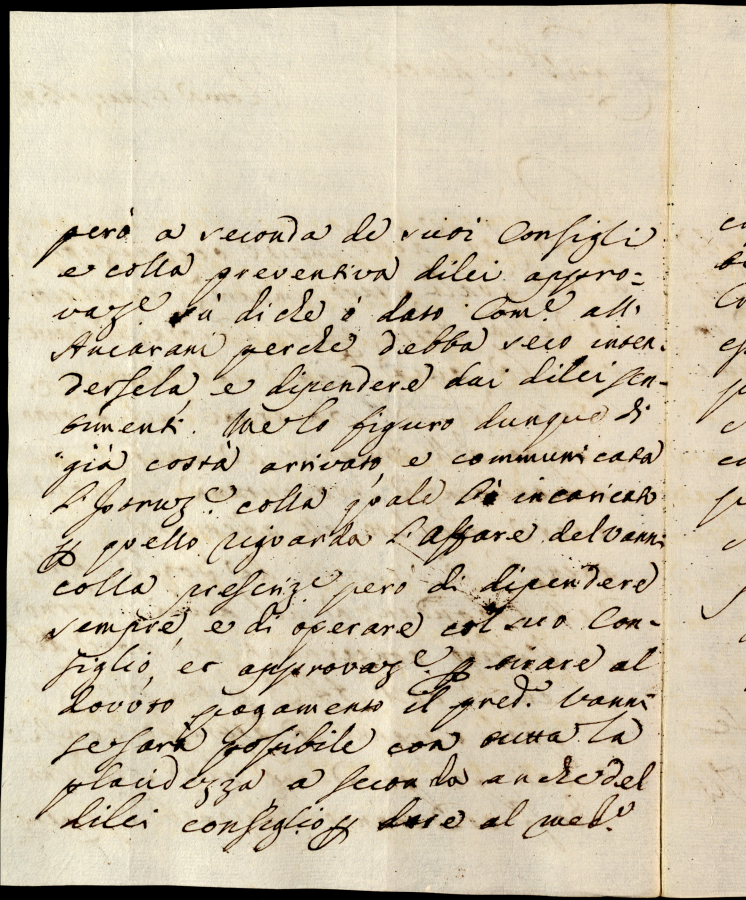 però a seconda de suoi Consigli
e colla preventiva dilei appro=
vaz.e sù di che ò dato Com.e all'
Ancarani perche debba seco inten-
dersela, e dipendere dai dilei sen-
timenti. Me lo figuro dunque di
già costà arrivato, e communicata
l'Istruz.e colla quale l'ò incaricato
p quello riguarda l'affare del Vanni
colla prescriz.e però di dipendere
sempre, e di operare col suo Con-
siglio, et approvaz.e p tirare al
dovuto pagamento il pred.o Vanni
se sarà possibile con tutta la
placidezza a seconda anche del
dilei consiglio p dare al med.o